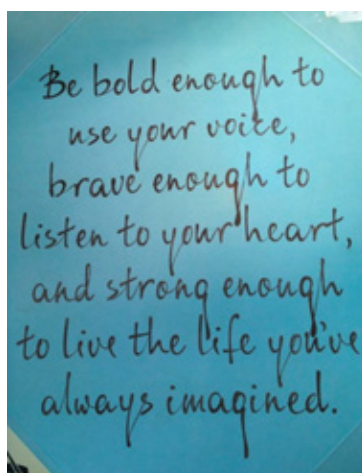 Be bold enough to
use your voice,
brave enough to
listen to your heart,
and strong enough
to live the life you've
always imagined.